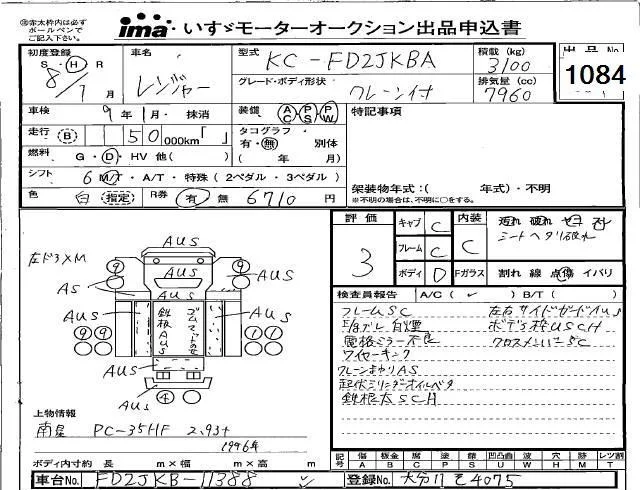 ※赤太枠内は必ず
ボールペンで
ご記入下さい。
ima・いすゞモーターオークション出品申込書
初度登録 S・H・R 8/7月
車名 レンジャー
型式 KC-FD2JKBA
積載(kg) 3100
出品No. 1084
グレード・ボディ形状 クレーン付
排気量(cc) 7960
車検 9年1月・抹消
装備 AC PS PW
特記事項
走行 B 150 000km「 」
タコグラフ 有・無 別体
( 年 月)
燃料 G・D・HV 他( )
シフト 6 M/T・A/T・特殊(2ペダル・3ペダル)
架装物年式:( 年式)・不明
※不明の場合は、不明に○をする。
色 白 指定 R券 有 無 6710円
評価 3
キャブ C
フレーム C
ボディ D
内装 C
汚れ 破れ
シートヘタリ破れ
Fガラス 割れ 線 点傷 イバリ
検査員報告 A/C( ✓ ) B/T( )
フレームSC
左右サイドガードAUS
電格ミラー不良
クロスメンバーSC
ワイヤーキンク
クレーンまわりAS
起伏シリンダーオイルベタ
鉄根太SCH
左ドアXM
AUS
9
9
AUS
AUS
AS
AUS
AUS
鉄板AUS
AUS
9 9
1 1
AUS
AUS
4
上物情報
南星 PC-35HF 2.93t
1996年
ボディ内寸約 長 m×幅 m×高 m
記号 傷A 板金B 腐C 塗P 錆S 凹凸曲U 波W 穴H 跡M レツ割T
車台No. FD2JKB-11388
登録No. 大分11そ4075